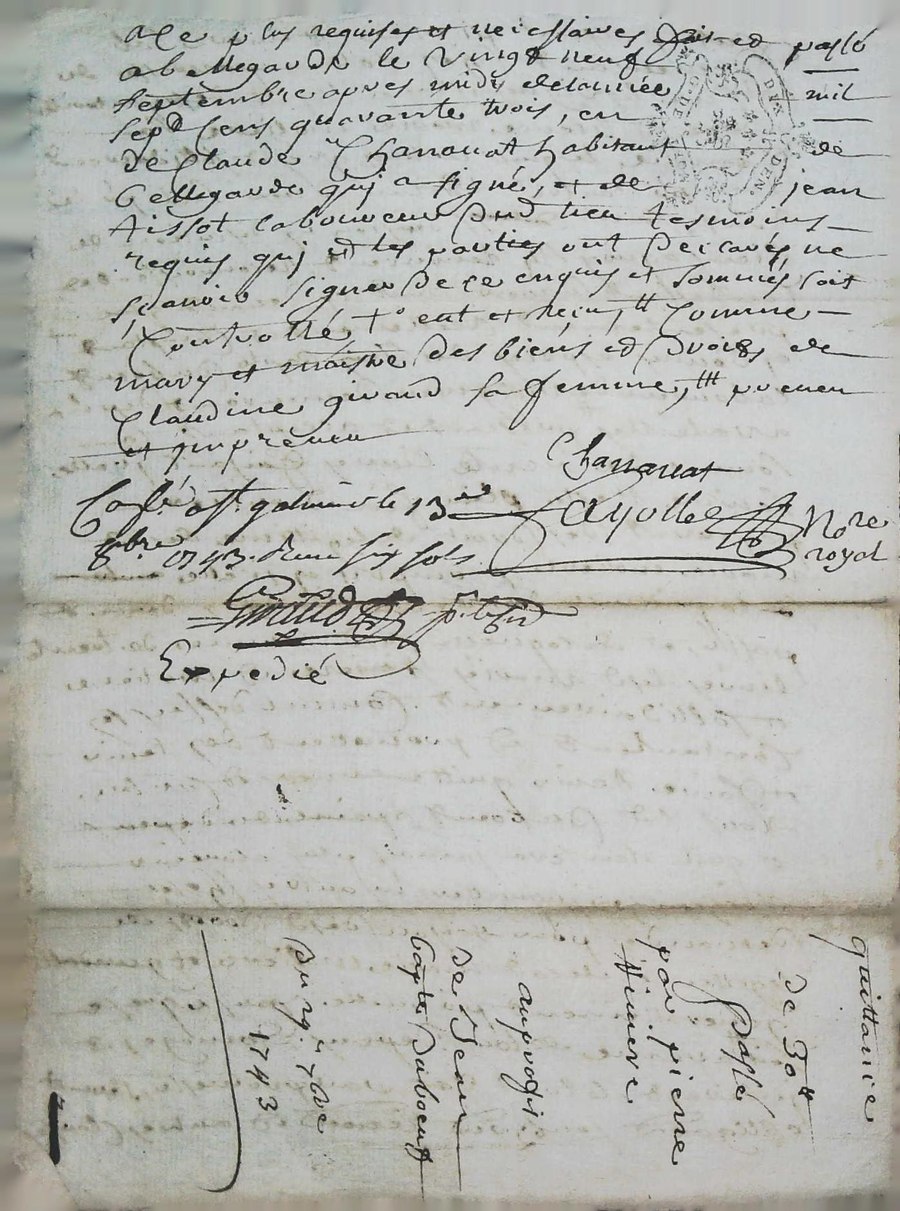 a ce plus requises et necessaires fait et passé
a bellegarde le vingt neuf
septembre apres midy de lannée mil
sept cens quarante trois, en
de Claude Chanouat habitant de
bellegarde qui a signé, et de jean
Tissot laboureur dud lieu tesmoins
requis qui et les parties ont declarés ne
sçavoir signer de ce enquis et sommés soit
Controllé, to est et reçu, tt comme
mary et maistre des biens et droits de
Claudine giraud sa femme, ttt preveu
et impreveu
Chanouat
Conlé a st galmier le 13me
fayolle Nore
royal
8bre 1743. Reçu six sols
Giraud
Expedié
quittance
de 30tt
Passé
par pierre
au profit
de Jean
Baptte Daboeuf
Du 29e 7bre
1743